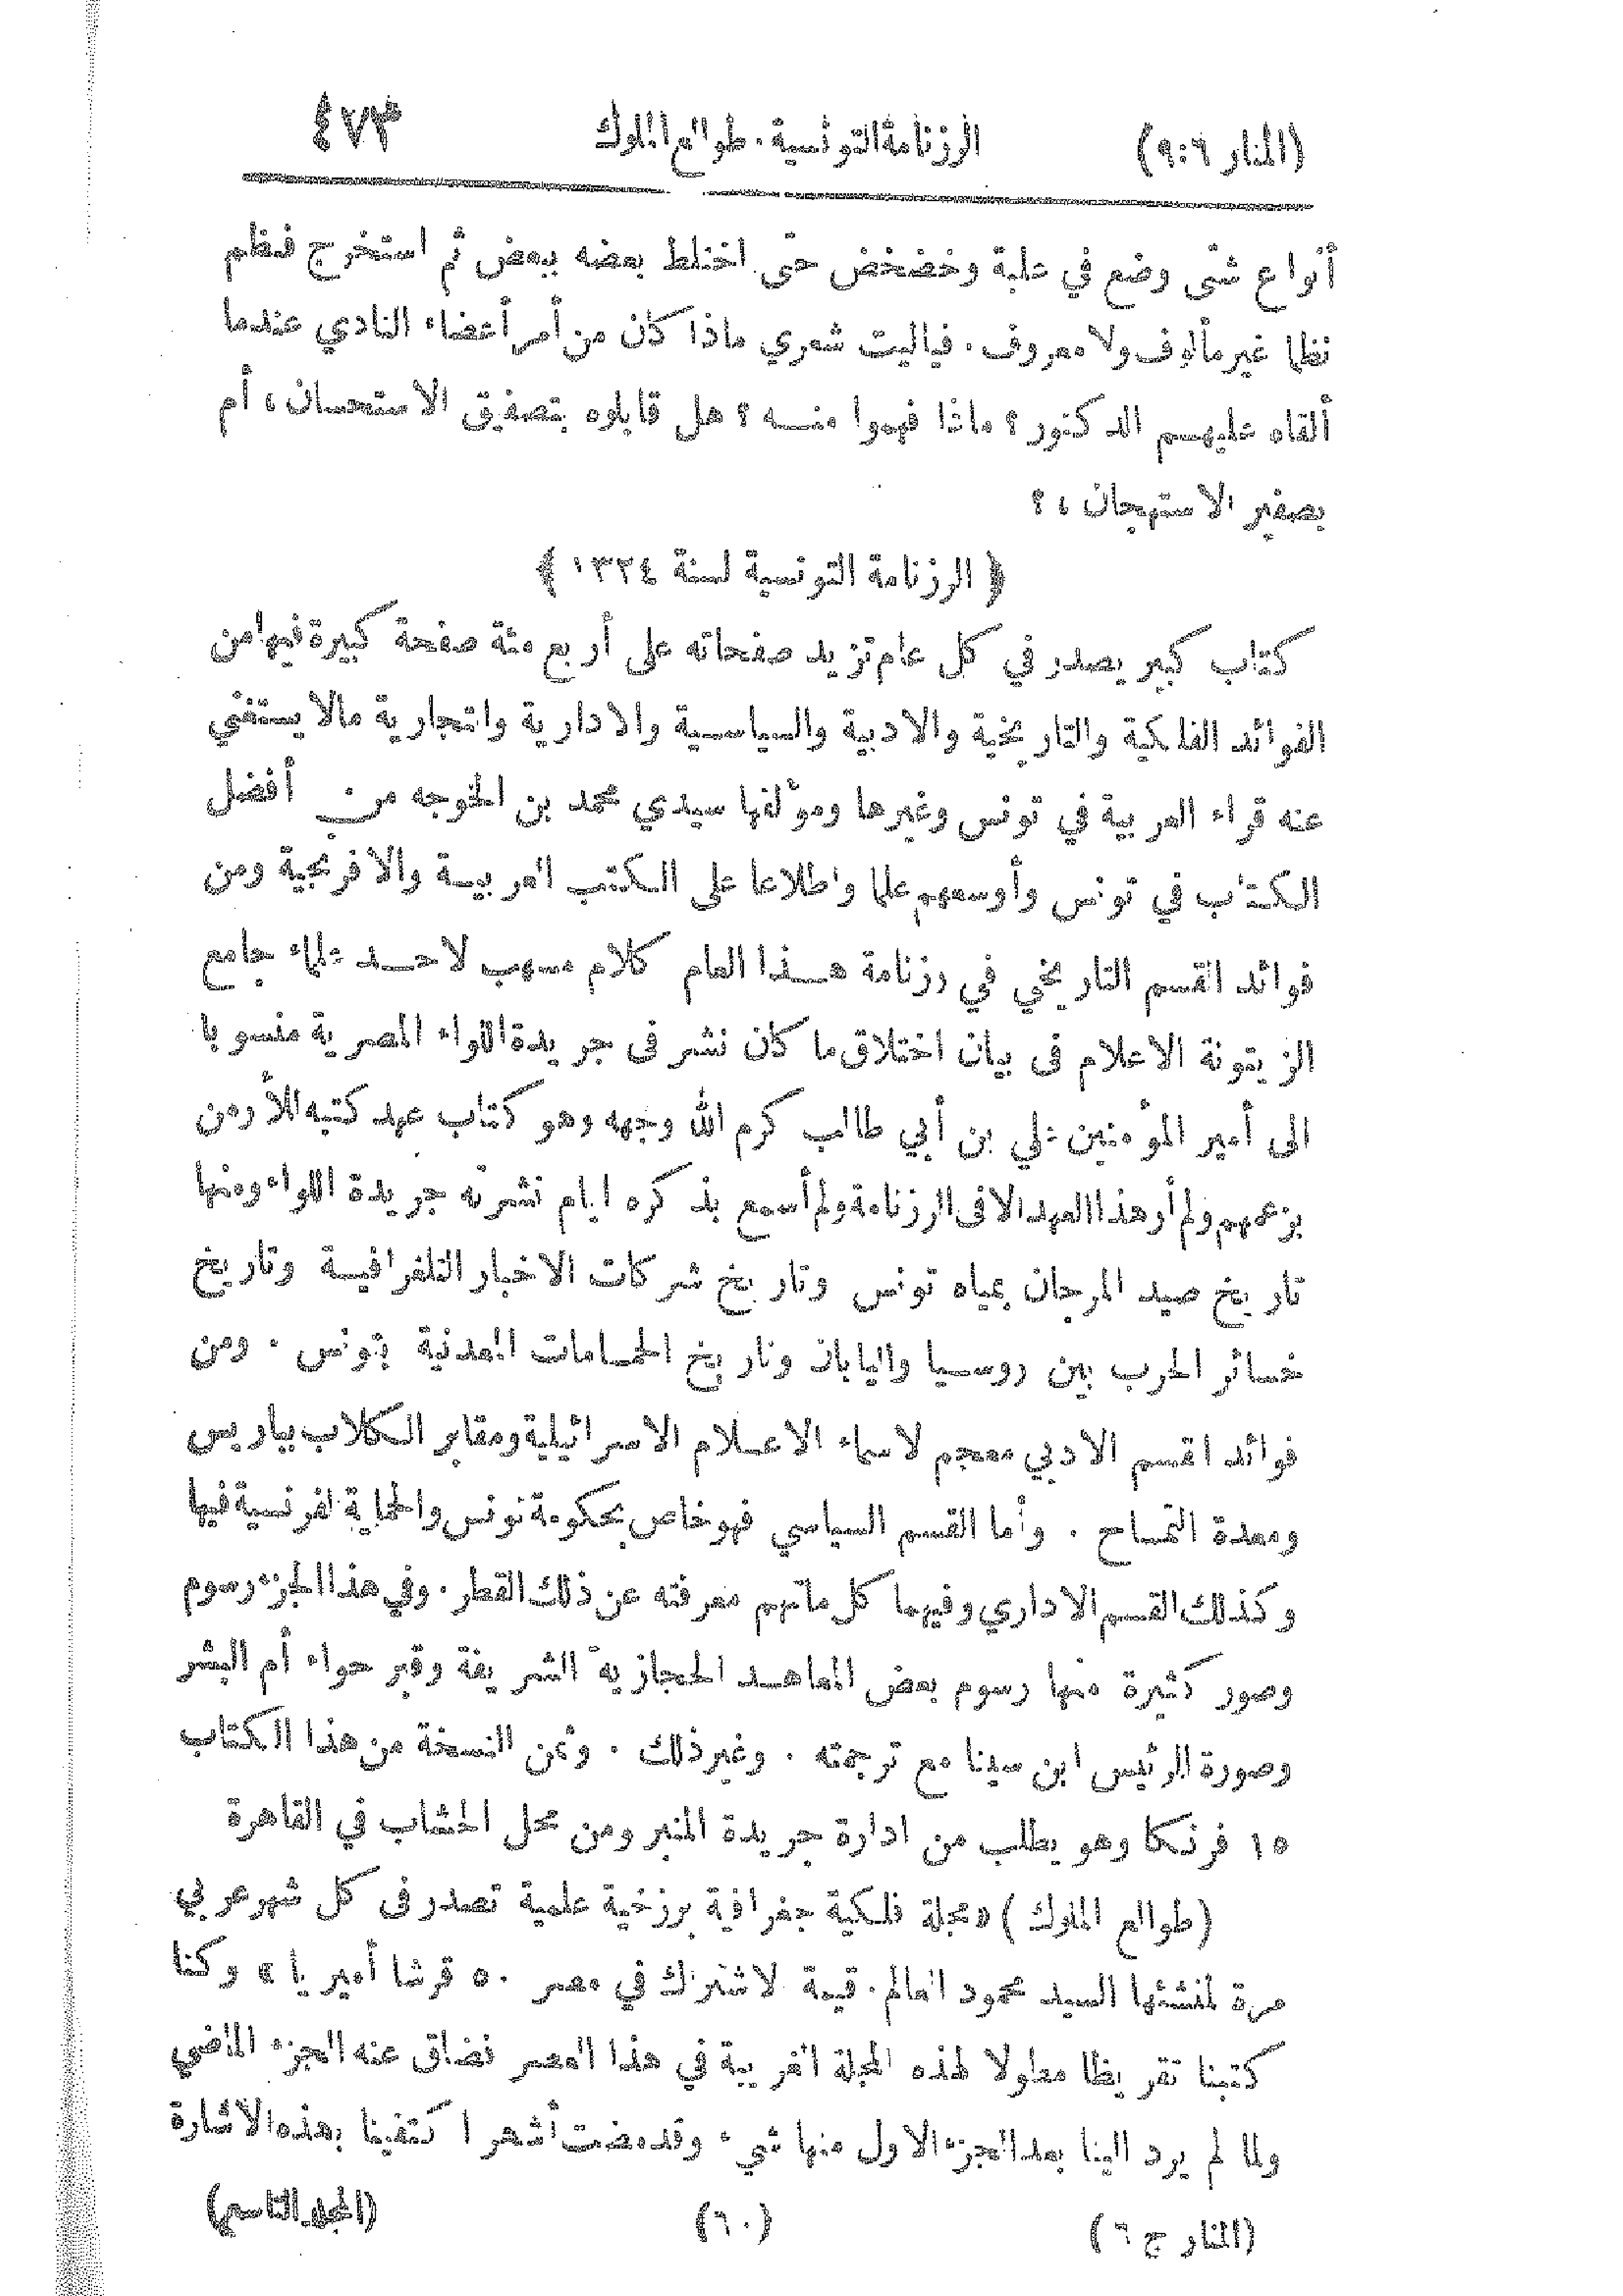 (المنار ٩:٦) الرزنامة التونسية . طوالع الملوك ٤٧٣
أنواع شتى وضع في علبة وخضخض حتى اختلط بعضه ببعض ثم استخرج فنظم
نظما غير مألوف ولا معروف . فياليت شعري ماذا كان من أمر أعضاء النادي عندما
ألقاه عليهم الدكتور ؟ ماذا فهموا منه ؟ هل قابلوه بتصفيق الاستحسان ، أم
بصفير الاستهجان ، ؟
﴿ الرزنامة التونسية لسنة ١٣٢٤ ﴾
كتاب كبير يصدر في كل عام تزيد صفحاته على أربع مئة صفحة كبيرة فيها من
الفوائد الفلكية والتاريخية والادبية والسياسية والادارية والتجارية مالا يستغني
عنه قراء العربية في تونس وغيرها ومؤلفها سيدي محمد بن الخوجه من أفضل
الكتاب في تونس وأوسعهم علما واطلاعا على الكتب العربية والافرنجية ومن
فوائد القسم التاريخي في رزنامة هذا العام كلام مسهب لاحد علماء جامع
الزيتونة الاعلام في بيان اختلاق ما كان نشر في جريدة اللواء المصرية منسوبا
الى أمير المؤمنين علي بن أبي طالب كرم الله وجهه وهو كتاب عهد كتبه للأرمن
بزعمهم ولم أر هذا العهد الا في الرزنامة ولم أسمع بذكره ايام نشرته جريدة اللواء ومنها
تاريخ صيد المرجان بمياه تونس وتاريخ شركات الاخبار التلغرافية وتاريخ
خسائر الحرب بين روسيا واليابان وتاريخ الحمامات المعدنية بتونس . ومن
فوائد القسم الادبي معجم لاسماء الاعلام الاسرائيلية ومقابر الكلاب بباريس
ومعدة التمساح . وأما القسم السياسي فهو خاص بحكومة تونس والحماية الفرنسية فيها
وكذلك القسم الاداري وفيهما كل ماتهم معرفته عن ذلك القطر . وفي هذا الجزء رسوم
وصور كثيرة منها رسوم بعض المعاهد الحجازية الشريفة وقبر حواء أم البشر
وصورة الرئيس ابن سينا مع ترجمته . وغير ذلك . وثمن النسخة من هذا الكتاب
١٥ فرنكا وهو يطلب من ادارة جريدة المنبر ومن محل الحشاب في القاهرة
(طوالع الملوك) «مجلة فلكية جغرافية برزخية علمية تصدر في كل شهر عربي
مرة لمنشئها السيد محمود العالم . قيمة لاشتراك في مصر ٥٠ قرشا أميريا » وكنا
كتبنا تقريظا مطولا لهذه المجلة الغريبة في هذا العصر فضاق عنه الجزء الماضي
ولما لم يرد الينا بعد الجزء الاول منها شيء وقد مضت أشهر اكتفينا بهذه الاشارة
(المنار ج ٦) (٦٠) (المجلد التاسع)